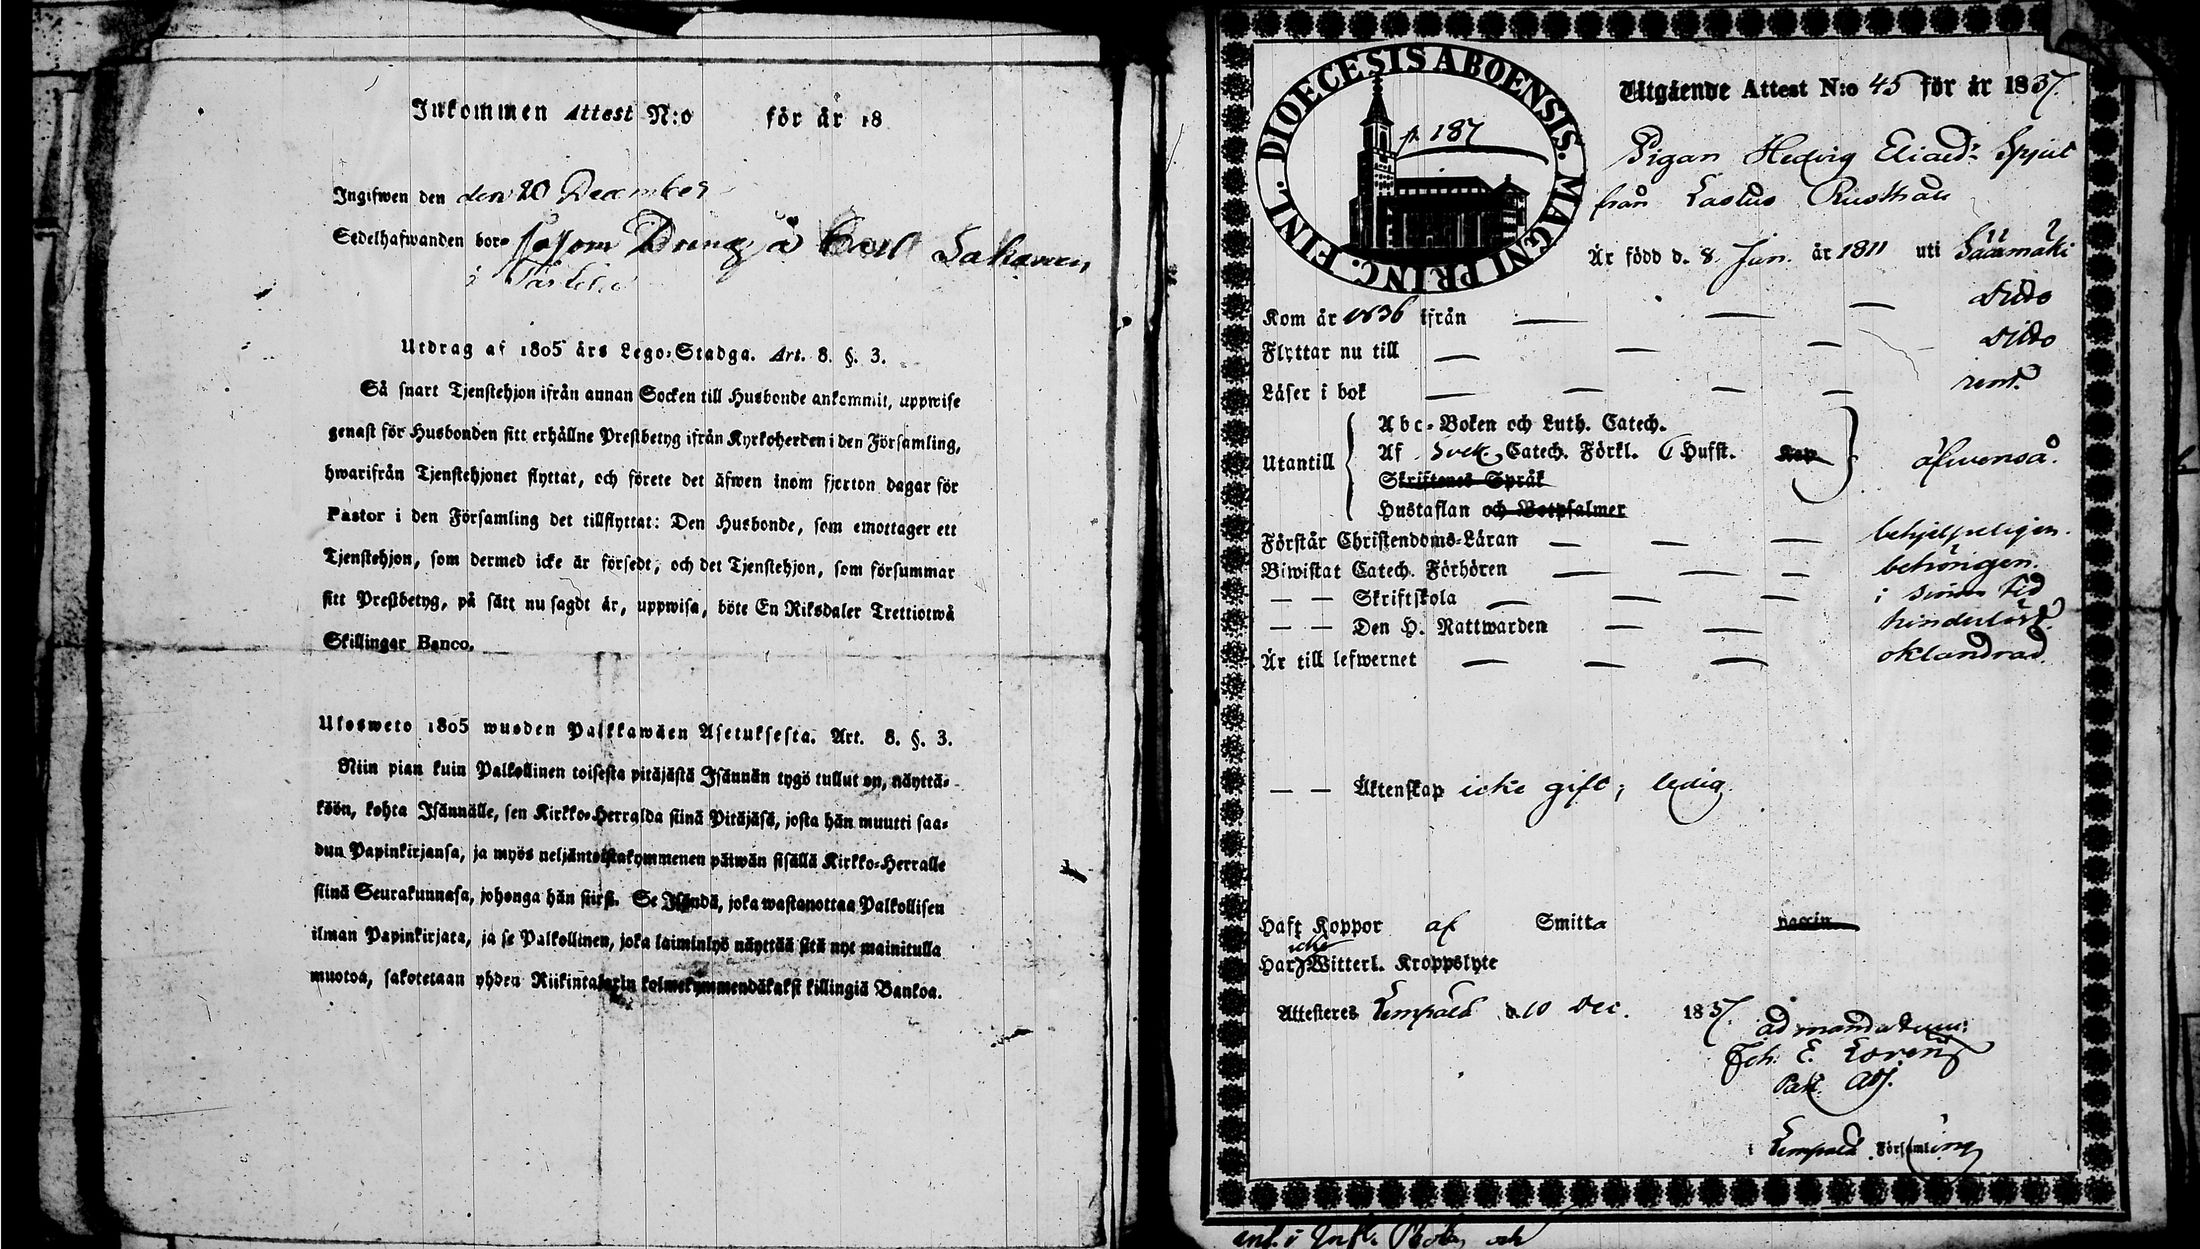 Inkommen Attest N:o för år 18
Ingifwen den den 20 December
Sedelhafwanden bor som Dräng å
i
Utdrag af 1805 års Lego-Stadga. Art. 8. §. 3.
Så snart Tjenstehjon ifrån annan Socken till Husbonde ankommit, uppwise
genast för Husbonden sitt erhållne Prestbetyg ifrån Kyrkoherden i den Församling,
hwarifrån Tjenstehjonet flyttat, och förete det äfwen inom fjorton dagar för
Pastor i den Församling det tillflyttat: Den Husbonde, som emottager ett
Tjenstehjon, som dermed icke är försedt, och det Tjenstehjon, som försummar
sitt Prestbetyg, på sätt nu sagdt är, uppwisa, böte En Riksdaler Trettiotwå
Skillingar Banco.
Ulosweto 1805 wuoden Palkkawäen Asetuksesta. Art. 8. §. 3.
Niin pian kuin Palkollinen toisesta pitäjästä Isännän tygö tullut on, näyttä-
köön, kohta Isännälle, sen Kirkko-Herralda siinä Pitäjäsä, josta hän muutti saa-
dun Papinkirjansa, ja myös neljäntoistakymmenen päiwän sisällä Kirkko-Herralle
siinä Seurakunnasa, johonga hän siirsi. Se Isändä, joka wastanottaa Palkollisen
ilman Papinkirjata, ja se Palkollinen, joka laiminlyö näyttää sitä nyt mainitulla
muotoa, sakotetaan yhden Riikintalarin kolmekymmendäkaksi killingiä Bankoa.
DIOECESIS ABOENSIS. MAGNI PRINC. FINL.
p. 187
Utgående Attest N:o 45 för år 1837.
Pigan Hedvig Eliaed:r Spjut
från Lastus Rusthåll
Är född d. 8 Jun. år 1811 uti Sääxmäki
Kom år 1836 ifrån — — — dito
Flyttar nu till — — — dito
Läser i bok — — — — rent.
Utantill
Abc-Boken och Luth. Catech.
Af Sveb. Catech. Förkl. 6 Hufst. Kap.
Skriftenes Språk
Hustaflan och Botpsalmer
äfwenså.
Förstår Christendoms-Läran — — — behjelpeligen.
Biwistat Catech. Förhören — — — behörigen.
— — Skriftskola — — — i sinom tid
— — Den H. Nattwarden — — hinderlöst.
Är till lefwernet — — — oklandrad.
— — Äktenskap icke gift, ledig.
Haft Koppor af Smitta vaccin
icke
Har Witterl. Kroppslyte
Attesteres Lempälä d. 10 Dec. 1837.
ad mandatum:
Joh. E. Loren
Past. Adj.
i Lempälä Församling